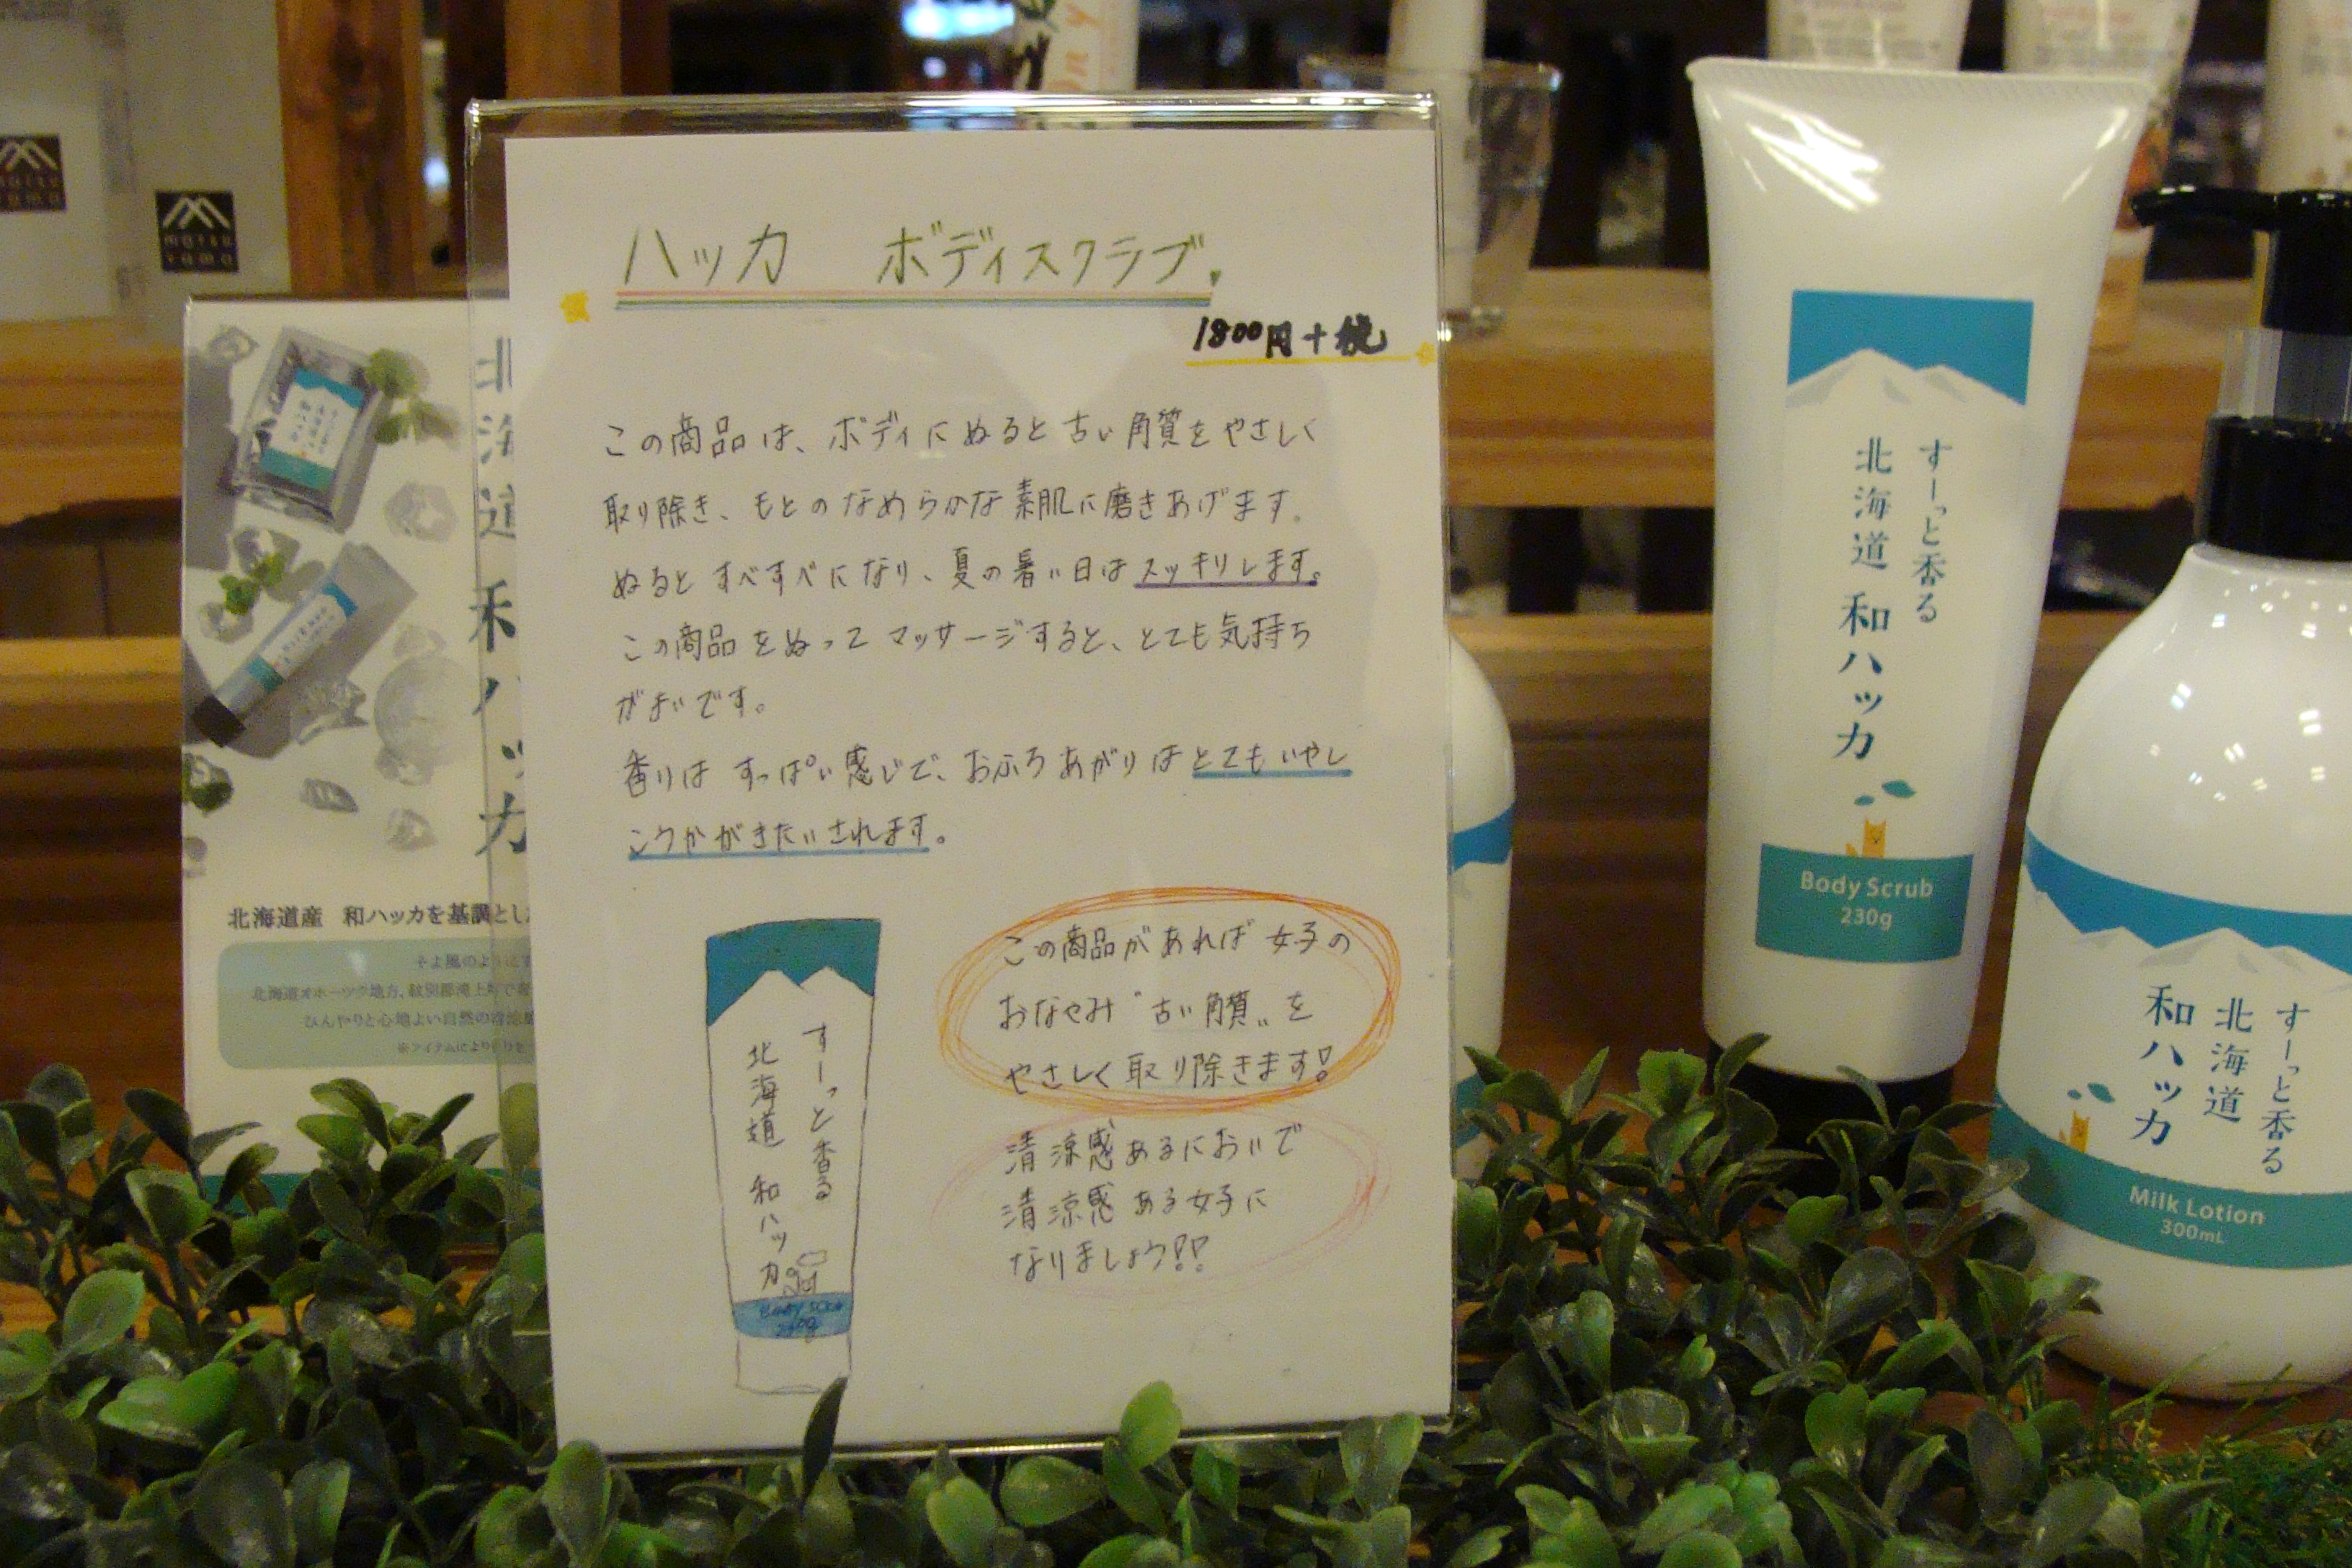 ハッカ ボディスクラブ
1800円+税
この商品は、ボディにぬると古い角質をやさしく
取り除き、もとのなめらかな素肌に磨きあげます。
ぬるとすべすべになり、夏の暑い日はスッキリします。
この商品をぬってマッサージすると、とても気持ち
がよいです。
香りはすっぱい感じで、おふろあがりはとてもいやし
こうかがきたいされます。
この商品があれば女子の
おなやみ〝古い角質〟を
やさしく取り除きます!
清涼感あるにおいで
清涼感ある女子に
なりましょう!!
すーっと香る
北海道 和ハッカ
すーっと香る
北海道 和ハッカ
Body Scrub
230g
すーっと香る
北海道
和ハッカ
Milk Lotion
300mL
北海道 和ハッカ
北海道産 和ハッカを基調とし
そよ風のように
北海道オホーツク地方、紋別郡滝上町で
ひんやりと心地よい自然の
matsu
yama